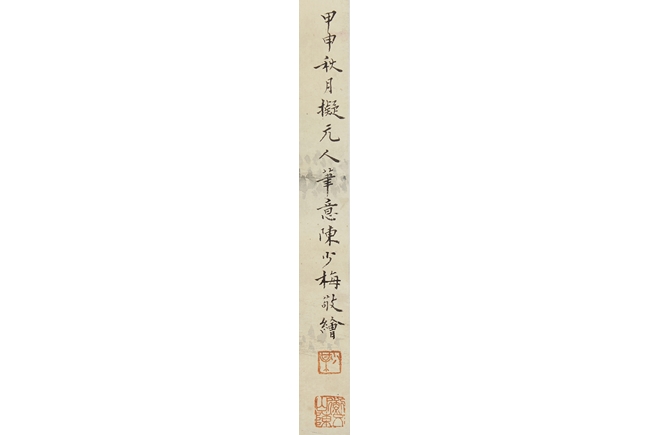 甲申秋月擬元人筆意陳少梅敬繪